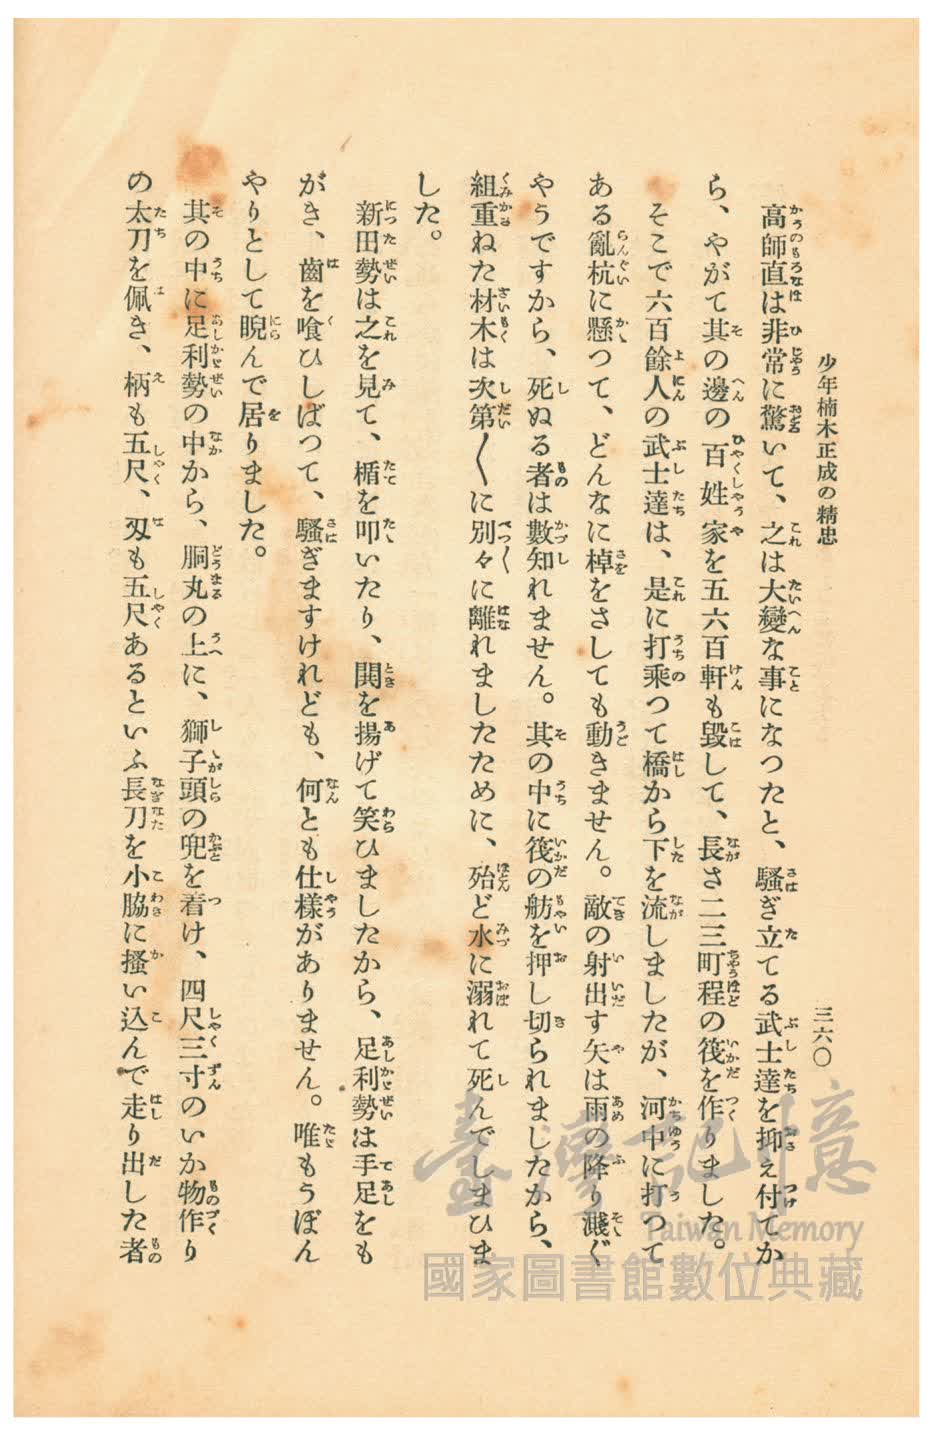 少年楠木正成の精忠
三六〇
高師直は非常に驚いて、之は大變な事になつたと、騷ぎ立てる武士達を抑え付てか
ら、やがて其の邊の百姓家を五六百軒も毀して、長さ二三町程の筏を作りました。
そこで六百餘人の武士達は、是に打乘つて橋から下を流しましたが、河中に打つて
ある亂杭に懸つて、どんなに棹をさしても動きません。敵の射出す矢は雨の降り濺ぐ
やうですから、死ぬる者は數知れません。其の中に筏の舫を押し切られましたから、
組重ねた材木は次第〱に別々に離れましたために、殆ど水に溺れて死んでしまひま
した。
新田勢は之を見て、楯を叩いたり、鬨を揚げて笑ひましたから、足利勢は手足をも
がき、齒を喰ひしばつて、騷ぎますけれども、何とも仕樣がありません。唯もうぼん
やりとして睨んで居りました。
其の中に足利勢の中から、胴丸の上に、獅子頭の兜を着け、四尺三寸のいか物作り
の太刀を佩き、柄も五尺、刄も五尺あるといふ長刀を小脇に搔い込んで走り出した者
臺灣記憶
Taiwan Memory
國家圖書館數位典藏